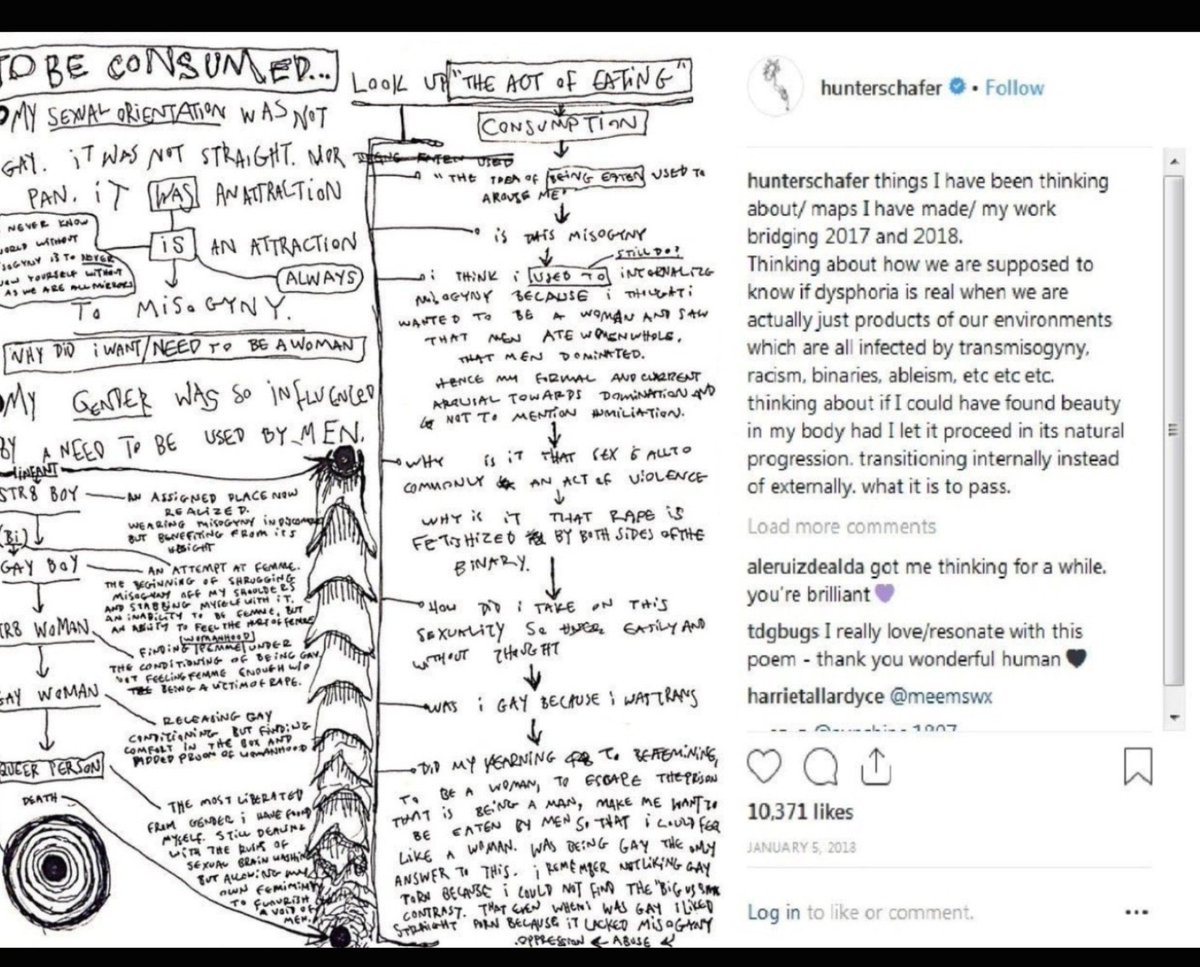 TO BE CONSUMED...
MY SEXUAL ORIENTATION WAS NOT
GAY. IT WAS NOT STRAIGHT. NOR
PAN. IT WAS AN ATTRACTION
NEVER KNOW
WORLD WITHOUT
MISOGYNY IS TO NEVER
YOURSELF WITHOUT
AS WE ARE ALL MIRRORS
IS AN ATTRACTION
ALWAYS
TO MISOGYNY.
WHY DID i WANT/NEED TO BE A WOMAN
MY GENDER WAS SO INFLUENCED
BY A NEED TO BE USED BY MEN.
INFANT
STR8 BOY
AN ASSIGNED PLACE NOW
REALIZED.
WEARING MISOGYNY IN
BUT BENEFITING FROM ITS
WEIGHT
(Bi)
GAY BOY
AN ATTEMPT AT FEMME.
THE BEGINNING OF SHRUGGING
MISOGYNY OFF MY SHOULDERS
AND STABBING MYSELF WITH IT.
AN INABILITY TO BE FEMME, BUT
AN ABILITY TO FEEL THE HURT OF FEMME
STR8 WOMAN
FINDING FEMME UNDER
[WOMANHOOD]
THE CONDITIONING OF BEING GAY.
NOT FEELING FEMME ENOUGH W/O
BEING A VICTIM OF RAPE.
GAY WOMAN
RELEASING GAY
CONDITIONING BUT FINDING
COMFORT IN THE BOX AND
ADDED PROOF OF WOMANHOOD
QUEER PERSON
THE MOST LIBERATED
FROM GENDER i HAVE FOUND
MYSELF. STILL DEALING
WITH THE RUINS OF
SEXUAL BRAIN WASHING
BUT ALLOWING MY
OWN FEMININITY
TO FLOURISH
A VOID OF
MEN.
DEATH
LOOK UP "THE ACT OF EATING"
CONSUMPTION
"THE IDEA OF BEING EATEN USED TO
AROUSE ME"
IS THIS MISOGYNY
STILL DO?
i THINK i USED TO INTERNALIZE
MISOGYNY BECAUSE i THOUGHT i
WANTED TO BE A WOMAN AND SAW
THAT MEN ATE WOMEN WHOLE.
THAT MEN DOMINATED.
HENCE MY FORMAL AND CURRENT
AROUSAL TOWARDS DOMINATION AND
NOT TO MENTION HUMILIATION.
WHY IS IT THAT SEX IS ALL TO
COMMONLY AN ACT OF VIOLENCE
WHY IS IT THAT RAPE IS
FETISHIZED BY BOTH SIDES OF THE
BINARY.
HOW DID i TAKE ON THIS
SEXUALITY SO EASILY AND
WITHOUT THOUGHT
WAS i GAY BECAUSE i WAS TRANS
DID MY YEARNING TO BE FEMININE,
TO BE A WOMAN, TO ESCAPE THE PRISON
THAT IS BEING A MAN, MAKE ME WANT TO
BE EATEN BY MEN SO THAT i COULD FEEL
LIKE A WOMAN. WAS BEING GAY THE ONLY
ANSWER TO THIS. i REMEMBER NOT LIKING GAY
PORN BECAUSE i COULD NOT FIND THE "BIG VS
CONTRAST. THAT EVEN WHEN i WAS GAY i LIKED
STRAIGHT PORN BECAUSE IT LACKED MISOGYNY
OPPRESSION ABUSE
hunterschafer • Follow
hunterschafer things I have been thinking
about/ maps I have made/ my work
bridging 2017 and 2018.
Thinking about how we are supposed to
know if dysphoria is real when we are
actually just products of our environments
which are all infected by transmisogyny,
racism, binaries, ableism, etc etc etc.
thinking about if I could have found beauty
in my body had I let it proceed in its natural
progression. transitioning internally instead
of externally. what it is to pass.
Load more comments
aleruizdealda got me thinking for a while.
you're brilliant 💜
tdgbugs I really love/resonate with this
poem - thank you wonderful human 🖤
harrietallardyce @meemswx
10,371 likes
JANUARY 5, 2018
Log in to like or comment.